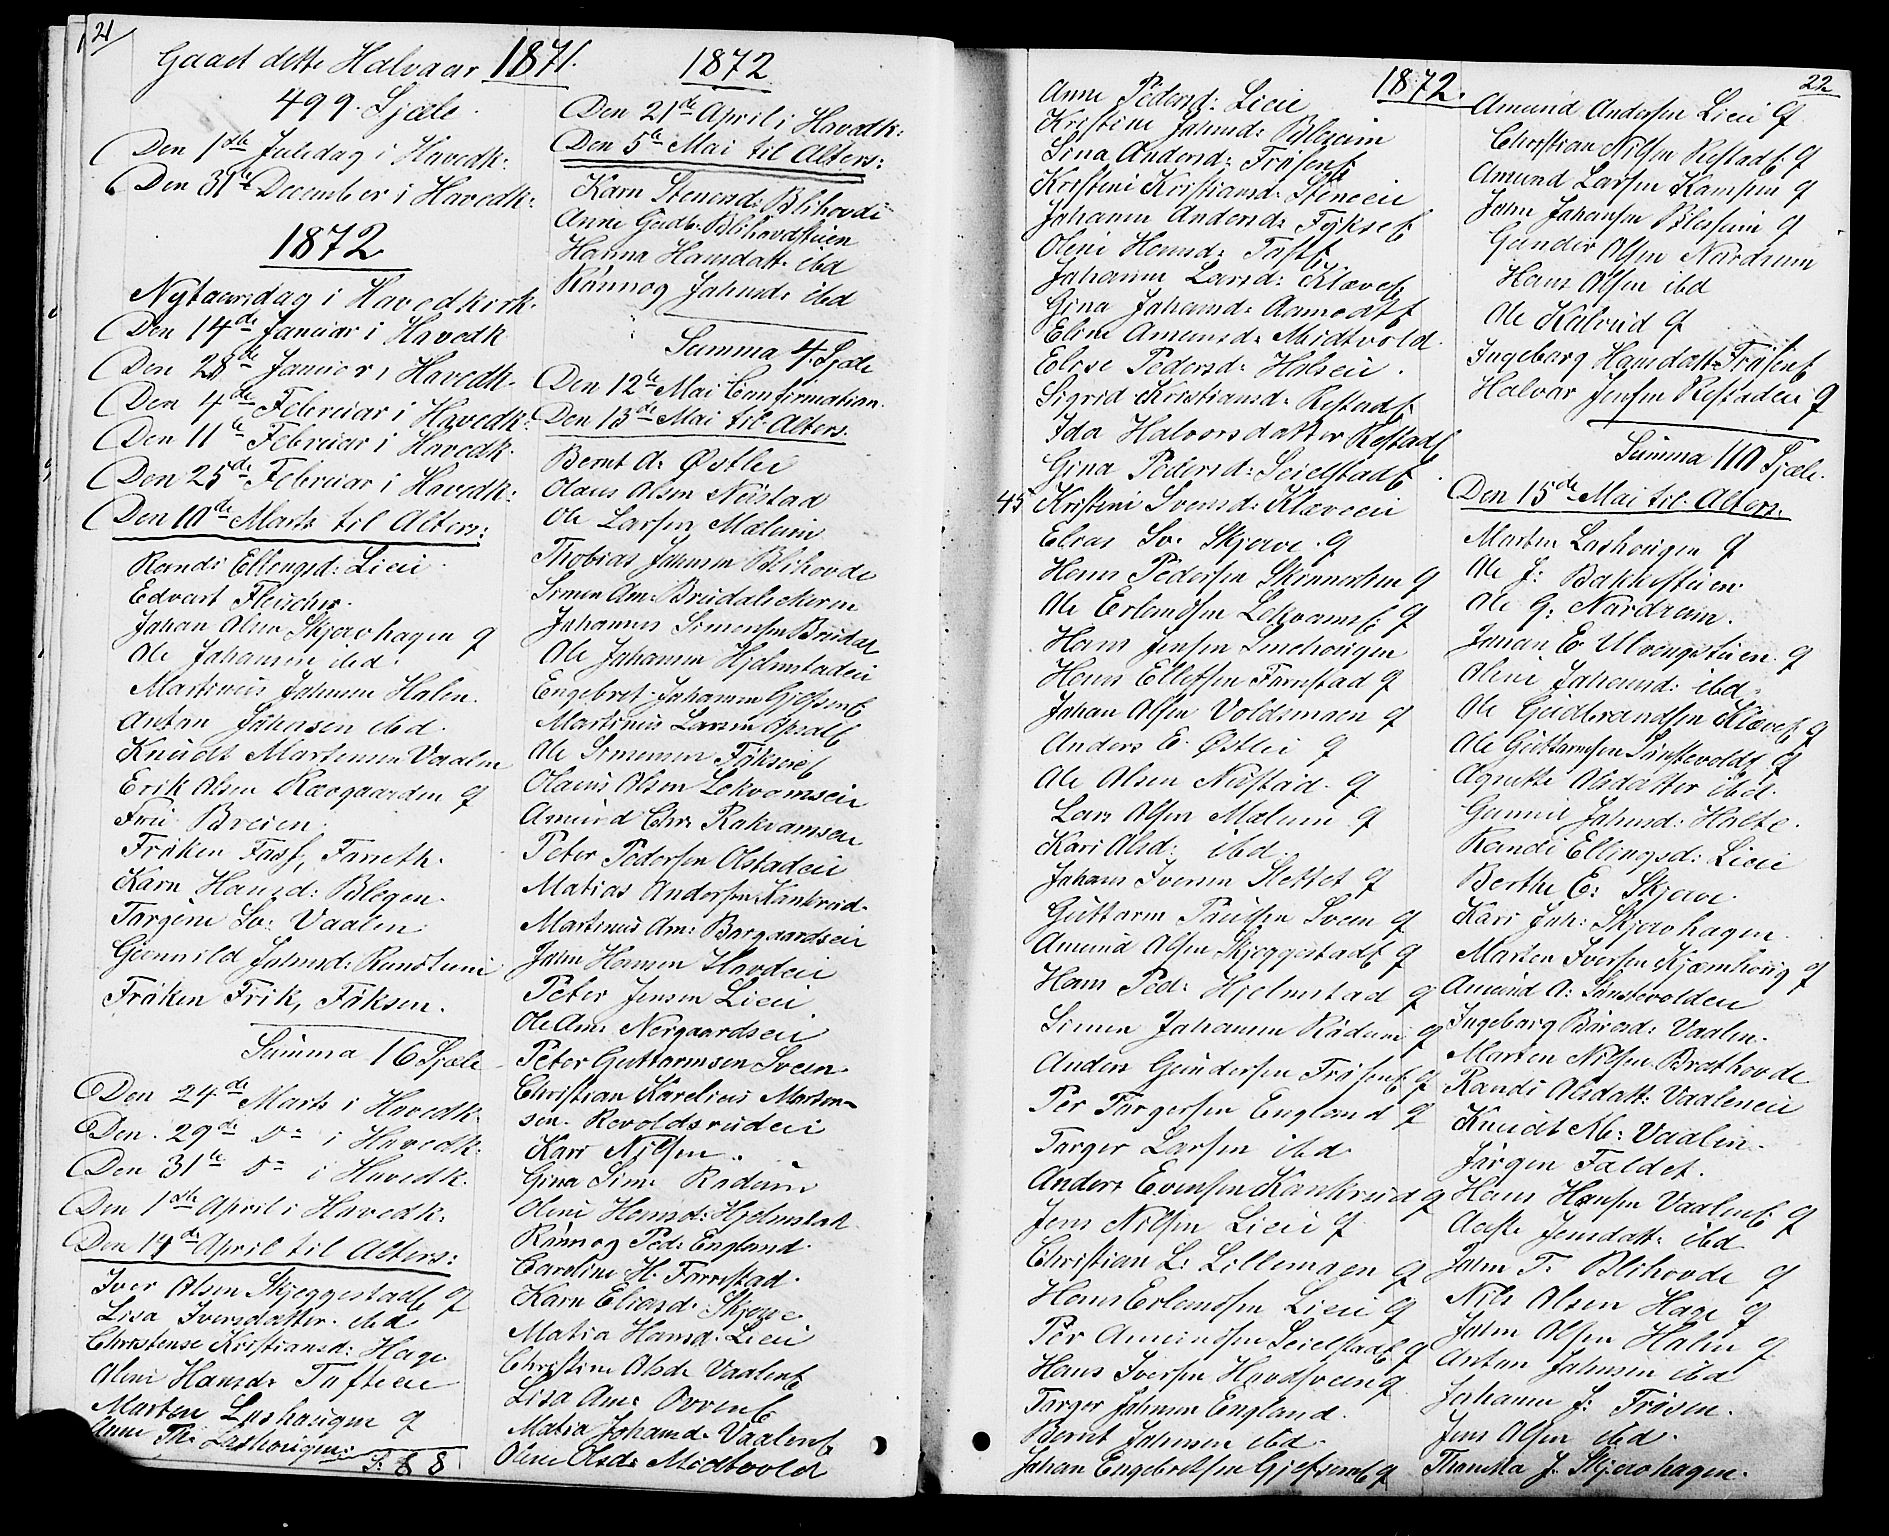 21
Gaaet dette Halvaar 1871.
499. Sjæle.
Den 1ste Juledag i Havedk:
Den 31te December i Havedk:
1872
Nytaarsdag i Havedkirk.
Den 14de Januar i Havedk
Den 28de Januar i Havedk.
Den 4de Februar i Havedk:
Den 11te Februar i Havedk.
Den 25de Februar i Havedk:
Den 10de Marts til Alters:
Randi Ellengsd: Lien
Edvart Fleischer.
Johan Olsen Skjævhagen g
Ole Johansen ibd.
Martinus Johnsen Halen.
Anton Johnsen ibd.
Knudt Martensen Vaalen
Erik Olsen Rævgaarden g
Fru Breien.
Frøken Fass, Fareth.
Karn Hansd: Blegen.
Torgine Sv: Vaalen
Gunnild Johnsd: Rundtuni
Frøken Frik, Føksen.
Summa 16 Sjæle
Den 24de Marts i Havedk.
Den 29de D= i Havedk.
Den 31te D= i Havedk.
Den 1ste April i Havedk:
Den 14de April til Alters:
Iver Olsen Skjeggestade g
Lisa Iversdatter ibd
Christense Kristiansd: Hage
Oline Hansd: Tofteeie
Marten Lashaugen g
Anne Th: Lashaugen
S: 8 8
1872
Den 21de April i Havedk:
Den 5te Mai til Alters:
Karn Stenersd: Blihovde
Anne Gudb: Blihovdstuen
Hanna Hansdatt. ibd
Rønnog Johnsd: ibd
Summa 4 Sjæle
Den 12te Mai Confirmation.
Den 13de Mai til Alters.
Bernt A: Østlie
Olaus Olsen Nustad
Ole Larsen Mælum
Thobias Johnsen Blihovde
Simen Am: Brudalskeren
Johannes Simensen Brudal
Ole Johansen Hjelmstadeie
Engebret Johansen
Martinus Larsen
Ole Simensen Føkseie
Olaus Olsen Lekvamseie
Amund Chr. Rakvamseie
Peter Pedersen Olstadeie
Matias Andersen Kankrud.
Martinus Am: Borgaardseie
John Hansen Havdeie
Peter Jensen Lieie
Ole Am: Norgaardseie
Peter Guttormsen Sveen.
Christian Karelius Marten=
sen Revoldsrudeie
Kari Nilsen.
Gina Sim: Rødum
Oline Hansd: Hjelmstad
Rønnog Ped: England.
Caroline H: Formstad.
Karn Eliasd: Skjæve
Matia Hansd: Lieie
Christine Olsd: Vaalen
Lisa Am:
Matia Johansd: Vaalen
Oline Olsd: Midtvold
1872.
22
Anne Pedersd: Lieie
Kristine Johnsd: Blessum
Sina Andersd: Frøsen
Kristine Kristiansd: Steneeie
Johanne Andersd: Fykse
Oline Hansd:
Johanne Larsd: Kløve
Gina Johansd: Aamodt
Eline Amunsd: Midtvold
Elise Pedersd: Haleeie.
Sigrid Kristiansd: Rostad
Ida Halvorsdatter Rostad
Gina Pedersd: Seielstad
45 Kristine Svensd: Kløveeie
Elias Sv: Skjæve g
Hans Pedersen Skinnerlien g
Ole Erlandsen Lekvam g
Hans Jensen Smehaugen
Hans Ellefsen Formstad g
Johan Olsen Voldsmoen g
Anders E. Østlie g
Ole Olsen Nustad g
Lars Olsen Mælum g
Kari Olsd: ibd
Johans Iversen Slettet g
Guttorm Paulsen Sveen g
Amund Olsen Skjeggestad g
Hans Ped: Hjelmstad g
Simen Johansen Rødum g
Anders Gundersen Frøsen g
Per Torgersen England g
Torger Larsen ibd
Anders Evensen Kankrud g
Jens Nilsen Lieie g
Christian L: Lillemoen g
Hans Erlandsen Lieie g
Per Amundsen Seielstad g
Hans Iversen Havdsveen g
Torger Johnsen England.
Bernt Johnsen ibd
Johan Engebretsen g
Amund Andersen Lieie g
Christian Nilsen Rostad g
Amund Larsen Kampen g
John Johansen Blessum g
Gunder Olsen Nordrum
Hans Olsen ibd
Ole Kalrud g
Ingeborg Hansdatt: Frøsen
Halvor Jensen Rostadeie g
Summa 110 Sjæle.
Den 15de Mai til Alters.
Marten Lashaugen g
Ole J: Bakkestuen
Ole G: Nordrum.
Johan E. Ulvengstuen g
Oline Johansd: ibd.
Ole Gudbrandsen Kløve g
Ole Guttormsen Sønstevold g
Agnette Olsdatter ibd.
Gunnil Johnsd: Holte.
Randi Ellingsd: Lieie
Berthe E: Skjæve.
Kari Joh: Skjævhagen.
Marten Iversen Kjæmhaug g
Amund A: Sønstevolden
Ingeborg Baarsd: Vaalen.
Marten Nilsen Brathovde
Randi Olsdatt: Vaaleneie
Knudt M: Vaalen.
Jørgen Faldet.
Hans Hansen Vaalen g
Aase Jensdatt: ibd
John T. Blihovde g
Nils Olsen Hage g
John Olsen Halen g
Anton Johnsen ibd
Johanne J: Frøsen.
Jens Olsen ibd.
Thomina J. Skjævhagen.